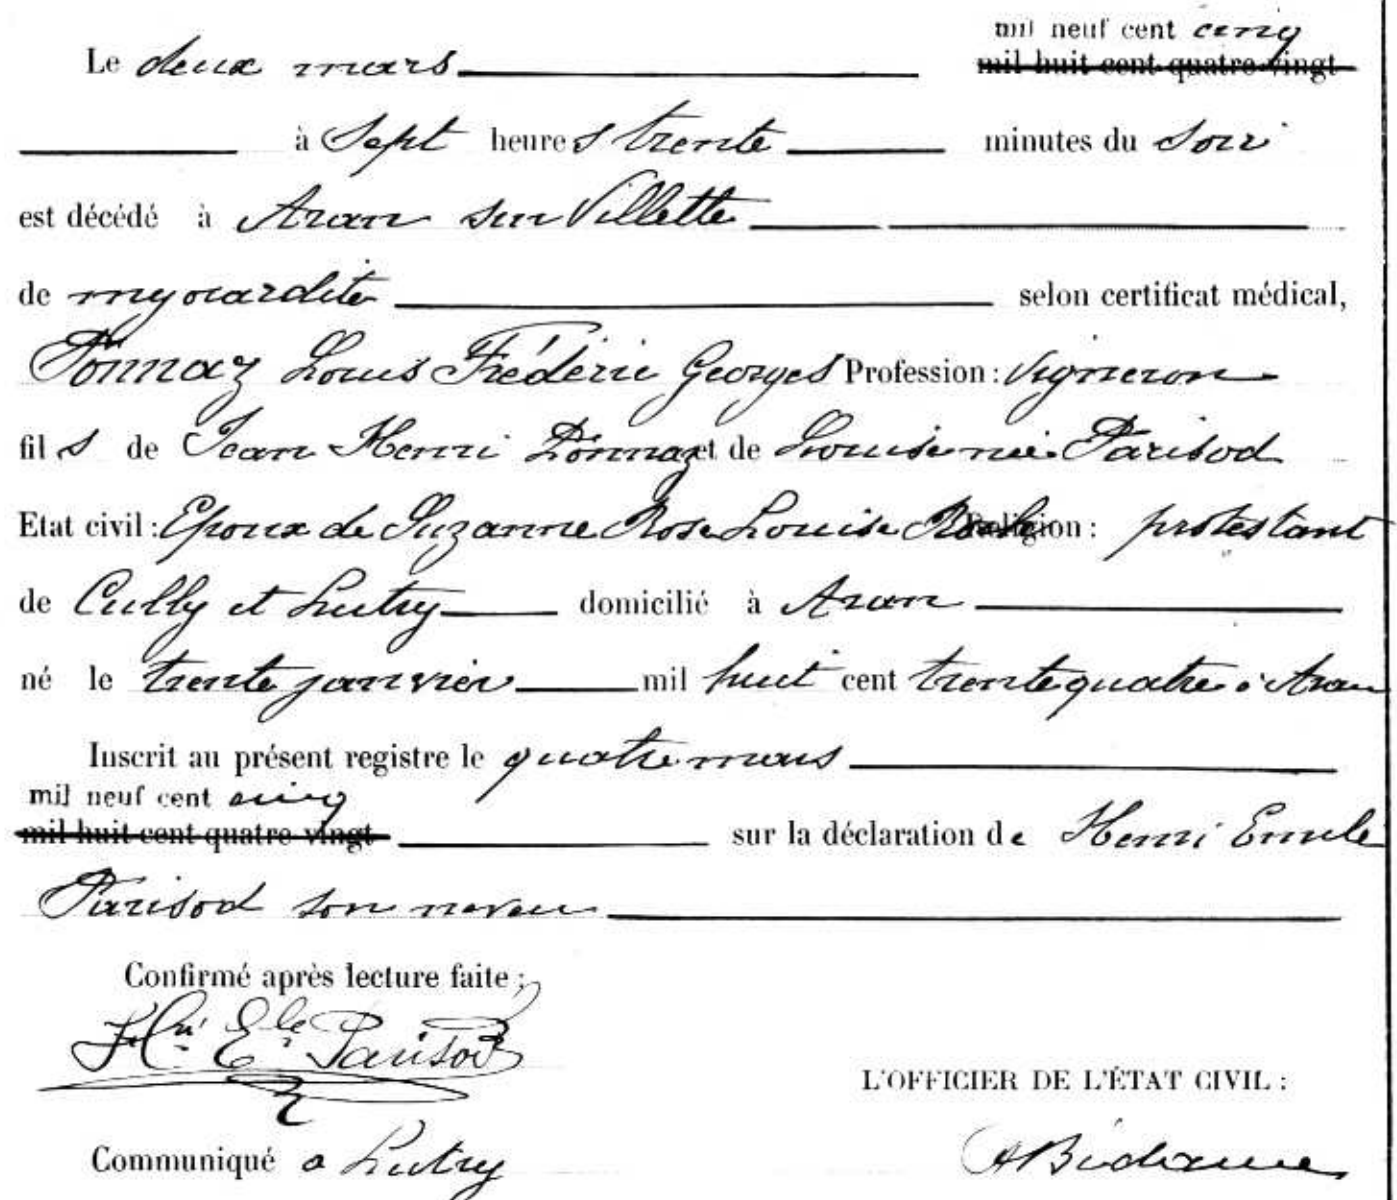 mil neuf cent cinq
Le deux mars mil huit cent quatre vingt
à Sept heures trente minutes du soir
est décédé à Aran sur Villette
de myocardite selon certificat médical,
Pönnaz Louis Frédéric Georges Profession : vigneron
fils de Jean Henri Pönnaz et de Louise née Parisod
Etat civil : Epoux de Suzanne Rose Louise Religion : protestant
de Cully et Lutry domicilié à Aran
né le trente janvier mil huit cent trente quatre à Aran
Inscrit au présent registre le quatre mars
mil neuf cent cinq
mil huit cent quatre vingt sur la déclaration de Henri Emile
Parisod son neveu
Confirmé après lecture faite :
Hri Ele Parisod
L'OFFICIER DE L'ÉTAT CIVIL :
Communiqué a Lutry